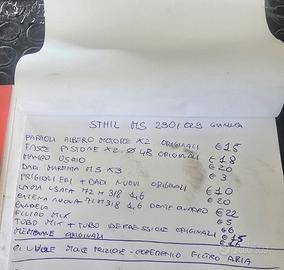 STHIL MS 290/029
PARAOLI ALBERO MOTORE X2 ORIGINALI €15
FASCE PISTONE X2 Ø 48 ORIGINALI €18
MANICO USATO €20
DADI MARMITTA MS X3 €3
PRIGIONIERI + DADI NUOVI ORIGINALI €10
LAMA USATA 72 M 3/8 1,6 €20
CATENA NUOVA 72 M 3/8 1,6 DENTE QUADRO €22
CANDELA €5
FILTRO MIX €6
TUBO MIX + TUBO DEPRESSIONE ORIGINALI
MEMBRANE ORIGINALI €15
MOLLE FRIZIONE - COPERCHIO FILTRO ARIA